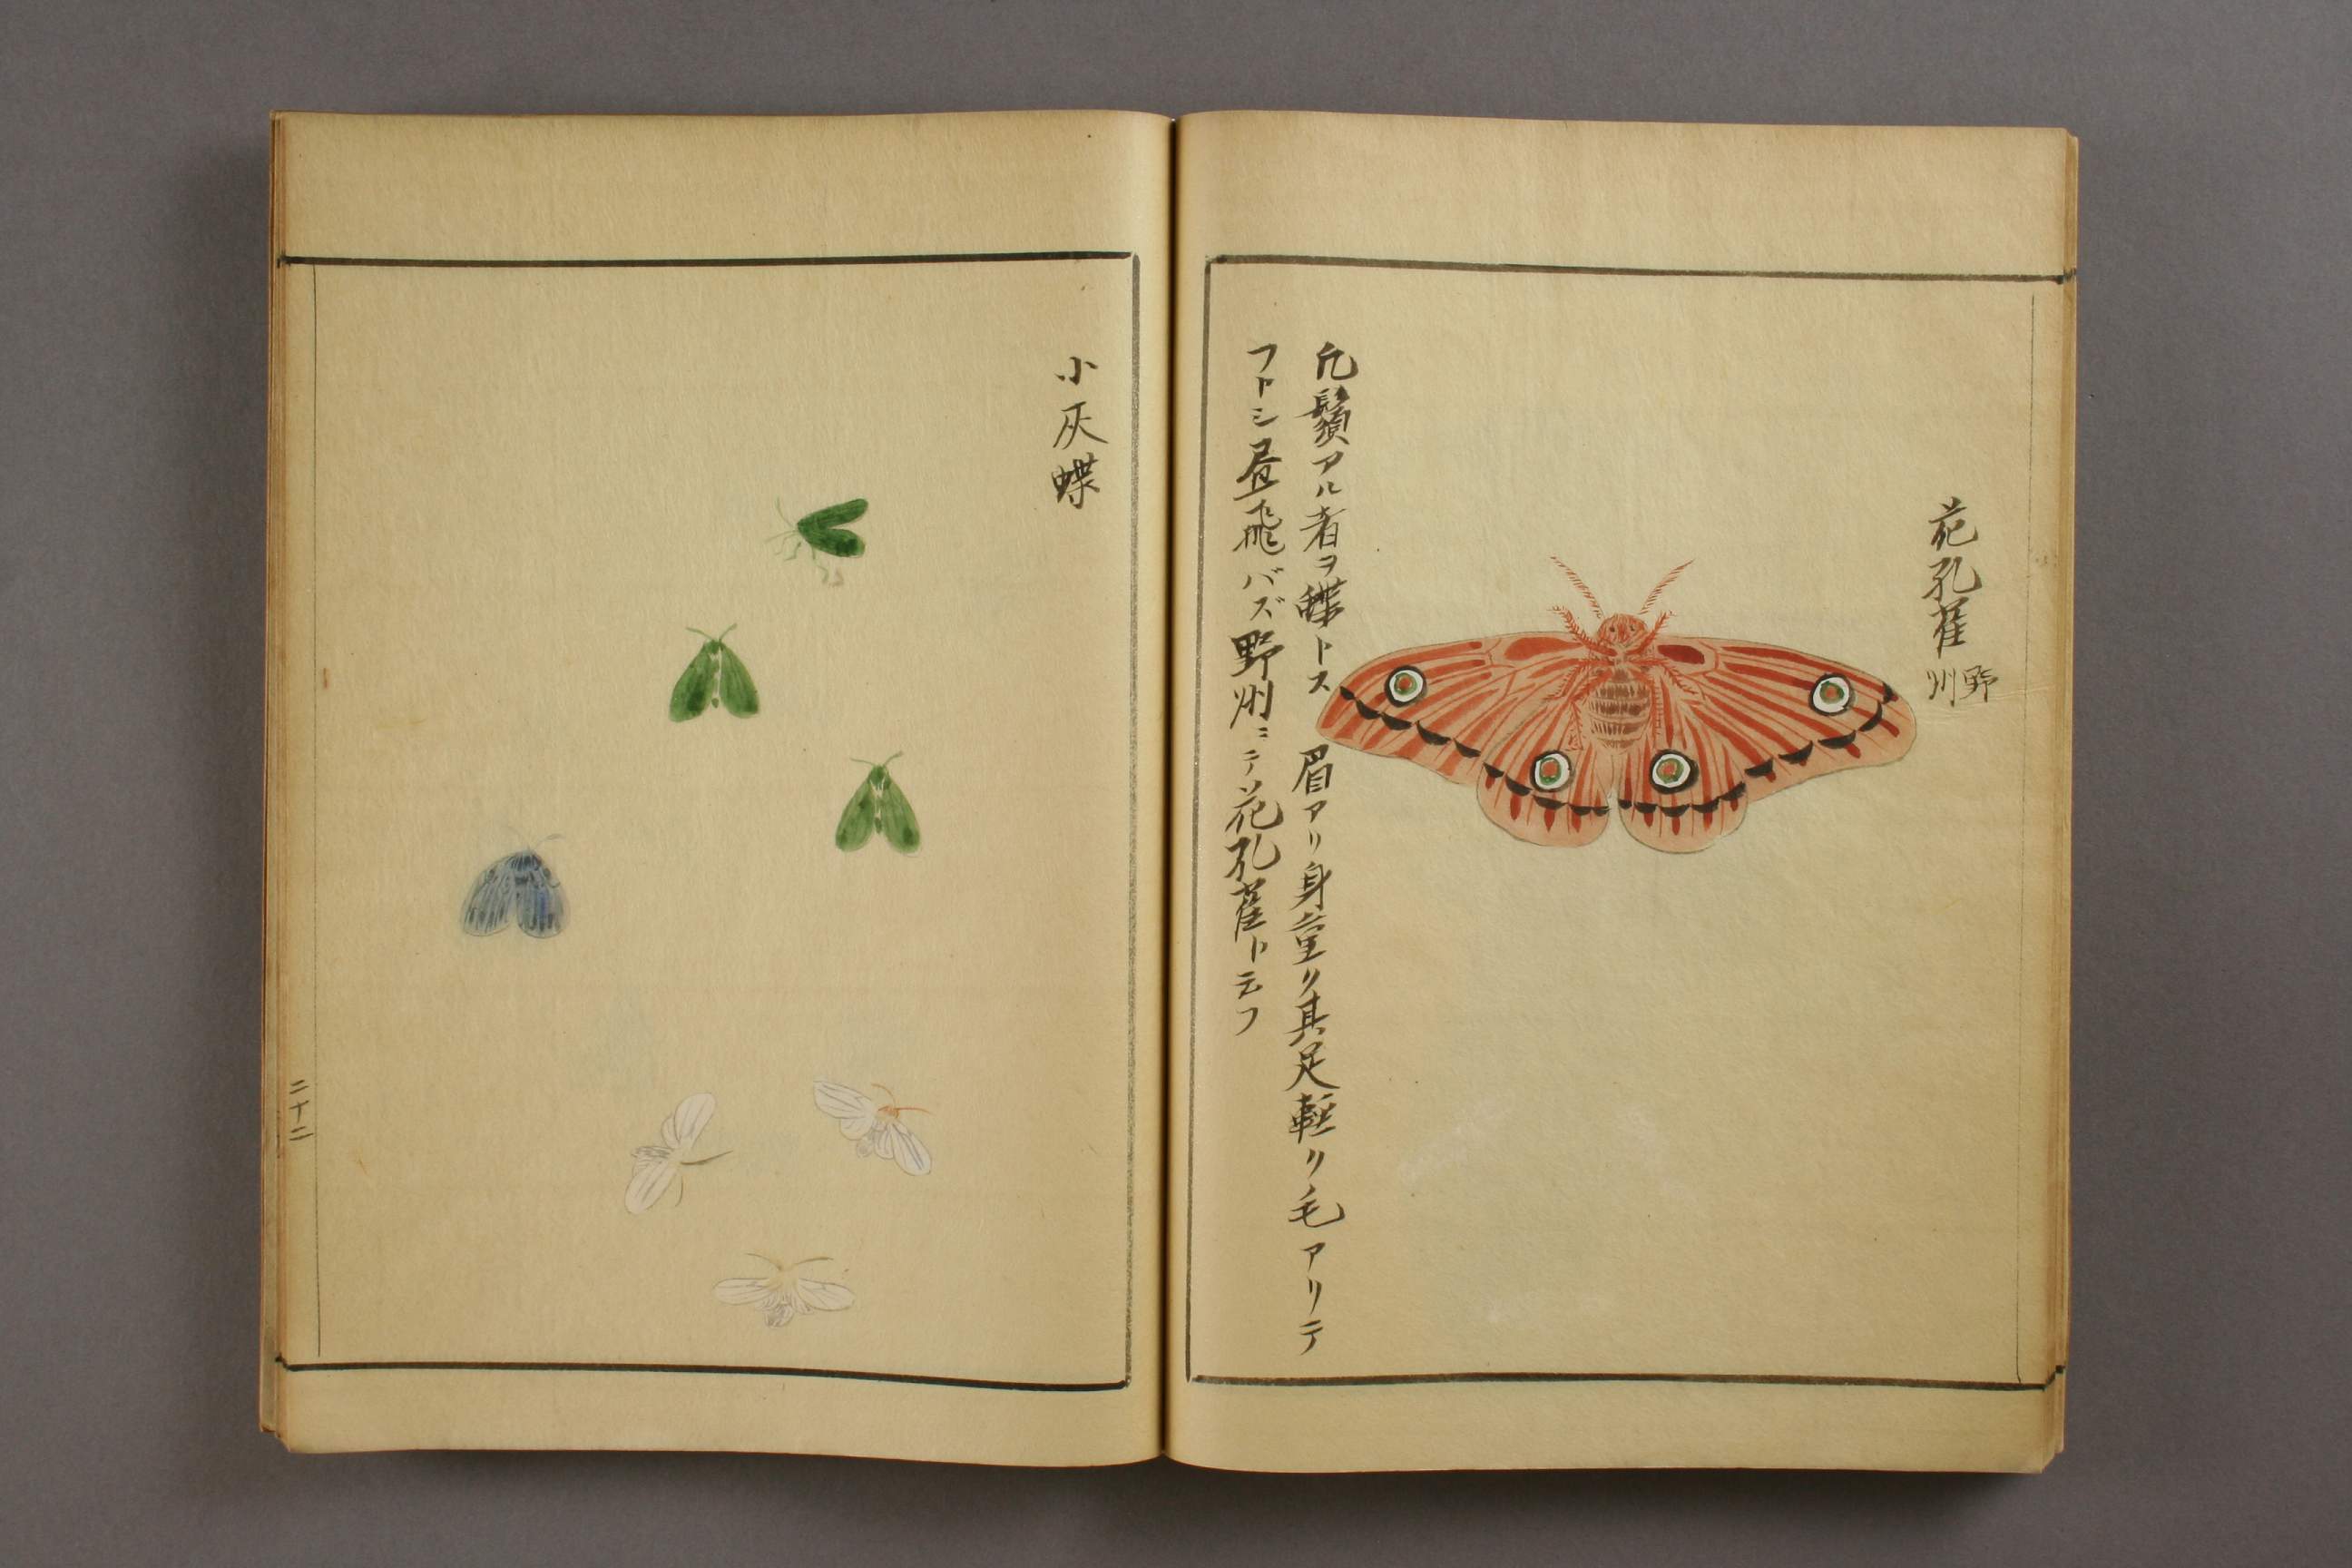 花孔雀
野州
凢鬚アル者ヲ蝶トス　眉アリ身重ク其足軽ク毛アリテ
フトシ昼飛バズ野州ニテ花孔雀ト云フ
小灰蝶
二十二